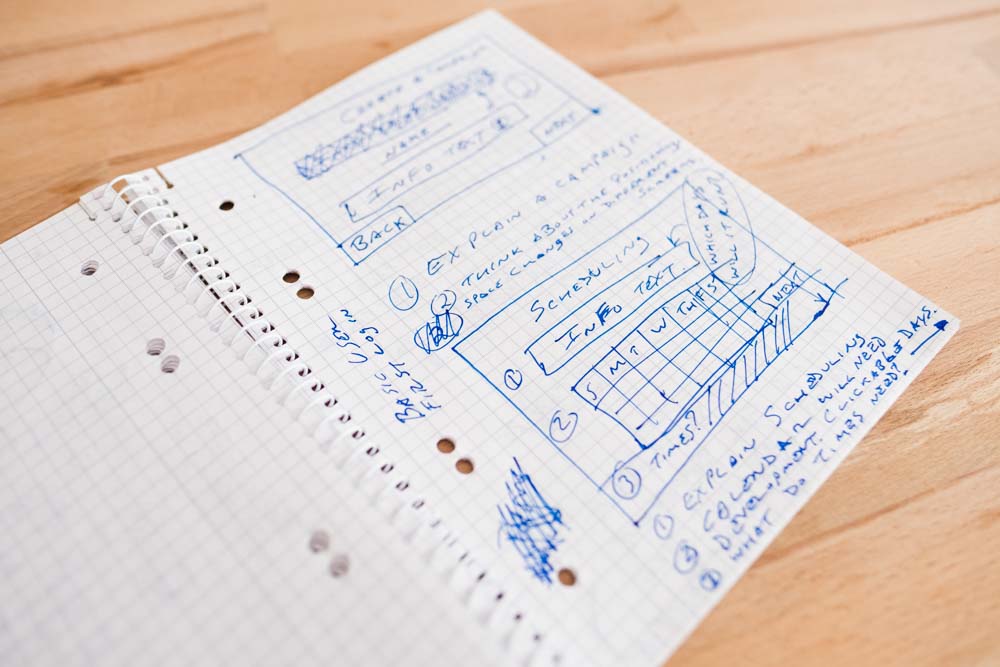 CREATE A CAMPAIGN
①
NAME
INFO TEXT ②
BACK
NEXT
① EXPLAIN A CAMPAIGN
② THINK ABOUT THE POSITIONING
SPACE CHANGES ON DIFFERENT
SCREEN
BASIC USER
FIRST LOG IN
SCHEDULING
WHICH DAY
WILL IT RUN?
① INFO TEXT
② S M T W TH F S
NEXT
③ TIMES?
① EXPLAIN SCHEDULING
③ CALENDAR WILL NEED
DEVELOPMENT. CLICKABLE DAYS.
② WHAT DO TIMES NEED?